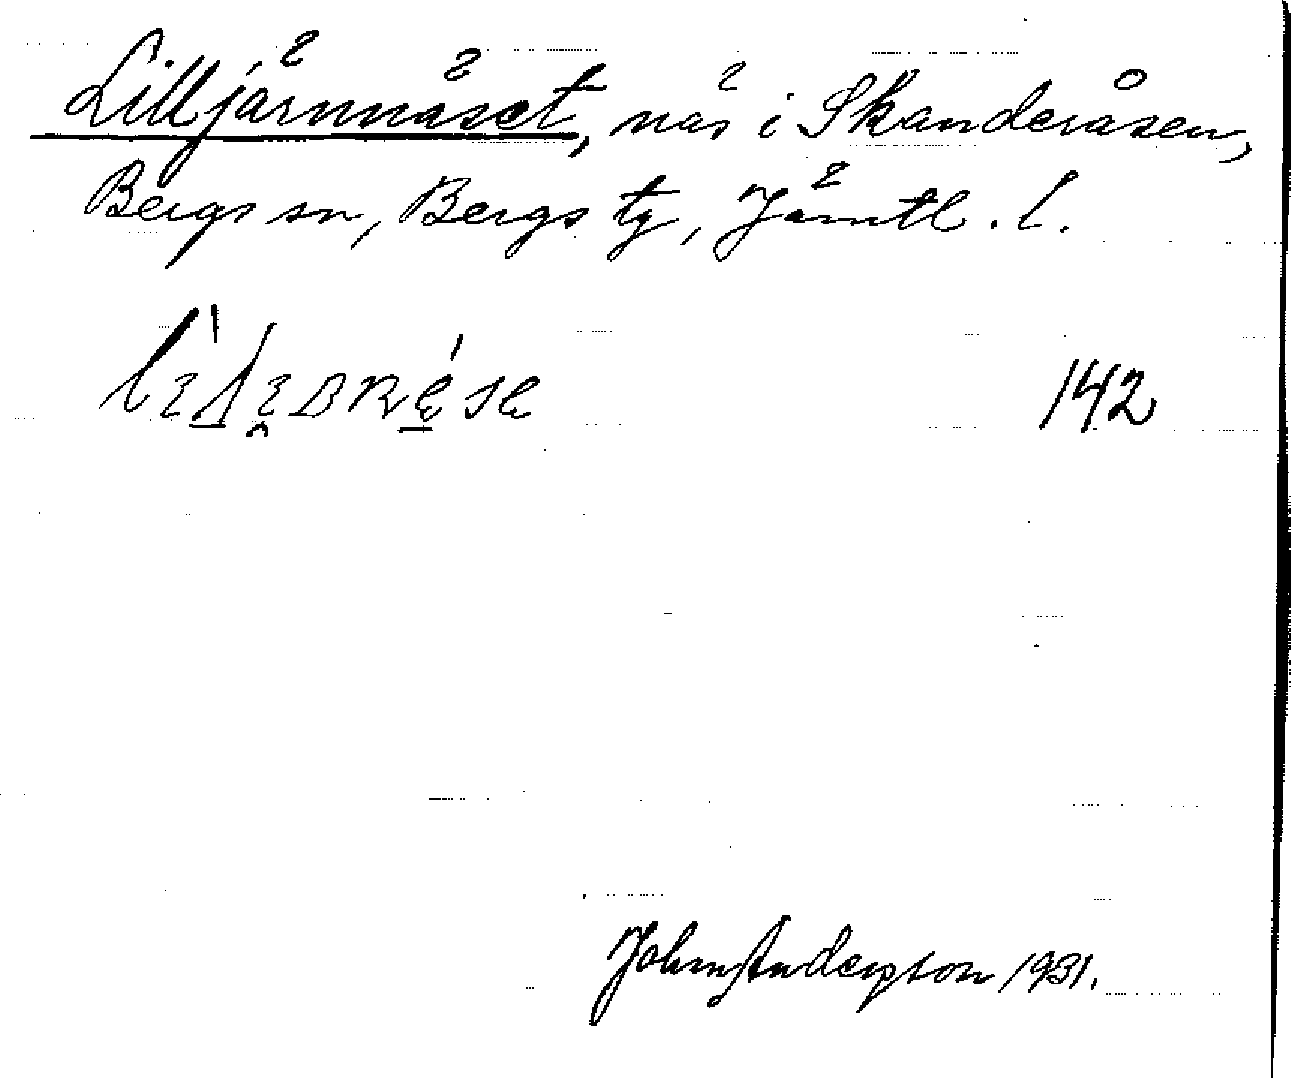 Lilljärnnäset, näs i Skanderåsen,
Bergs sn, Bergs tg, Jämtl. l.
142
John Anderson 1931.